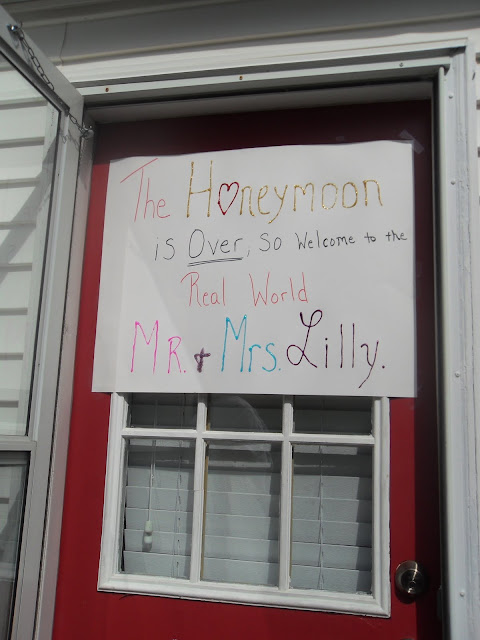 The Honeymoon
is Over, So Welcome to the
Real World
MR. + Mrs. Lilly.